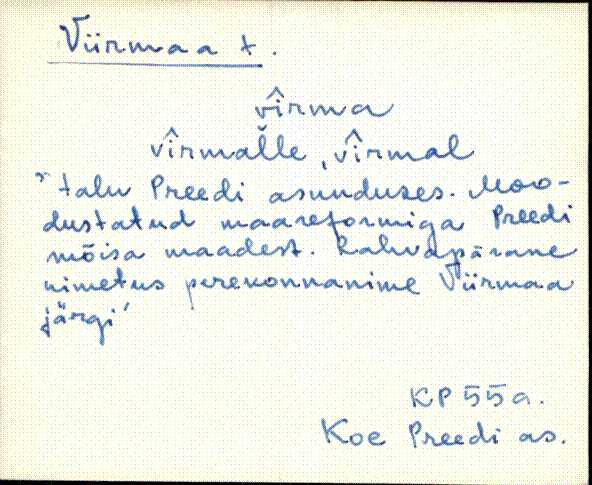 Viirmaa t.
vîrma
vîrmaľľe, vîrmal
'talu Preedi asunduses. Moo-
dustatud maareformiga Preedi
mõisa maadest. Rahvapärane
nimetus perekonnanime Viirmaa
järgi'
KP 55a.
Koe Preedi as.